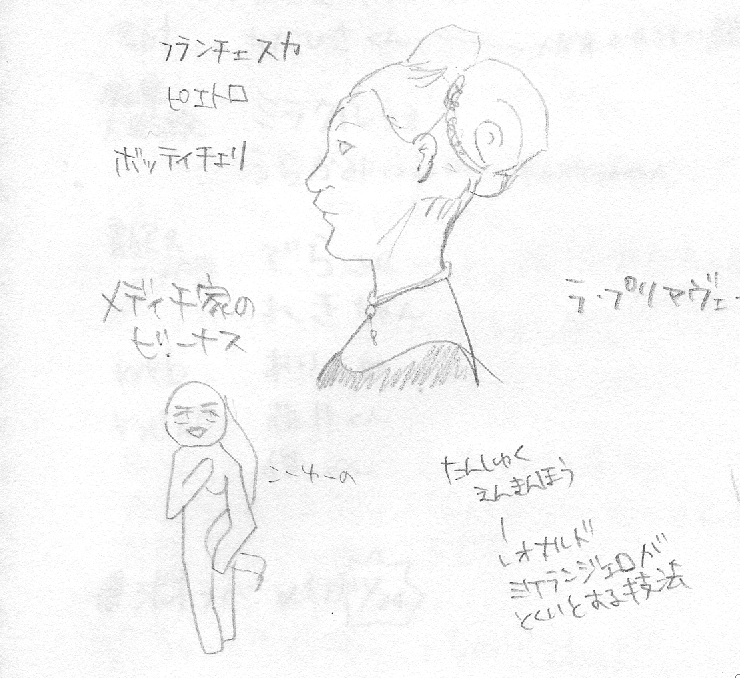 フランチェスカ
ピエトロ
ボッティチェリ
メディチ家の
ビーナス
ラ・プリマヴェ
こーゆーの
たんしゅく
えんきんほう
レオナルド
ミケランジェロが
とくいとする技法